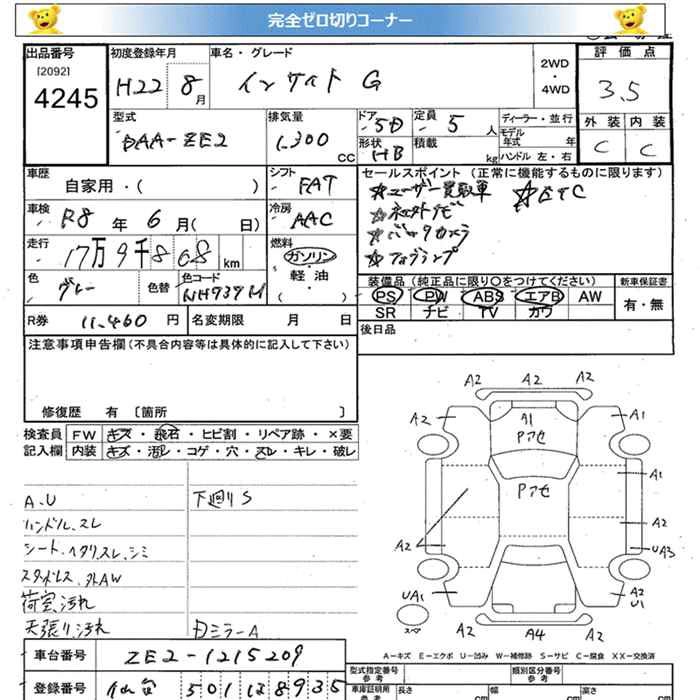 完全ゼロ切りコーナー
出品番号
[2092]
4245
初度登録年月
H22 8月
車名・グレード
インサイト G
2WD
・
4WD
評価点
3.5
外装 内装
C C
型式
DAA-ZE2
排気量
1,300 CC
ドア
5D
定員
5 人
形状
HB
積載
kg
ディーラー・並行
モデル年式 年
ハンドル 左・右
車歴
自家用・( )
シフト
FAT
車検
R8 年 6 月( 日)
冷房
AAC
走行
17万9千868 km
燃料
ガソリン
・軽・油
( )
色
グレー
色替
色コード
NH737M
R券 11,460 円
名変期限 月 日
セールスポイント (正常に機能するものに限ります)
☆ユーザー買取車 ☆ETC
☆社外ナビ
☆バックカメラ
☆フォグランプ
装備品 (純正品に限り○をつけてください)
新車保証書
PS PW ABS エアB AW
SR ナビ TV カワ
有・無
後日品
注意事項申告欄 (不具合内容等は具体的に記入して下さい)
修復歴 有 〔箇所 〕
検査員記入欄
FW キズ・飛石・ヒビ割・リペア跡・×要
内装 キズ・汚レ・コゲ・穴・スレ・キレ・破レ
A.U
ハンドル.スレ
シート.ヘタリスレ.シミ
スタッドレス.外AW
荷室汚れ
天張り汚れ
下廻りS
Dミラー A
A2 A2 A2
A2 A1 A1
Pアセ
A1
Pアセ
A2
A2 UA3
UA1 A2
U1
スペア
A2 A4 A2
A-キズ E-エクボ U-凹み W-補修跡 S-サビ C-腐食 XX-交換済
車台番号 ZE2-1215209
登録番号 仙台 501 ほ 8935
型式指定番号
参考
類別区分番号
参考
車庫証明用
参考
長さ cm
幅 cm
高さ cm